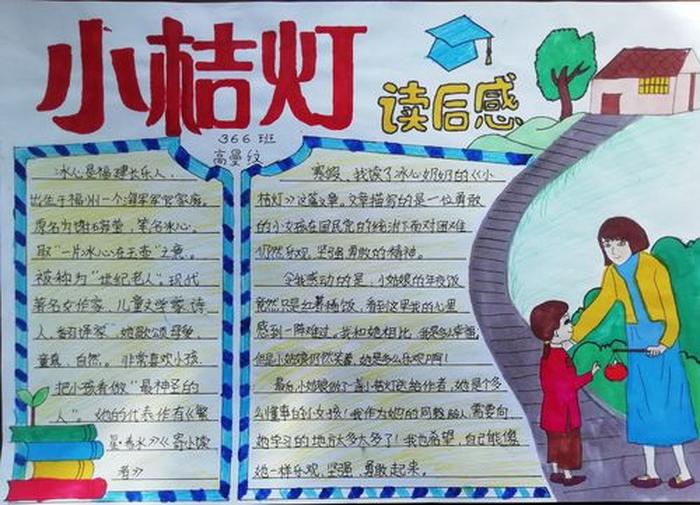 小桔灯
读后感
366班
高曼纹
冰心是福建长乐人,
出生于福州一个海军军官家庭,
原名为谢婉莹,笔名冰心。
取“一片冰心在玉壶”之意。
被称为“世纪老人”。现代
著名女作家、儿童文学家、诗
人、翻译家。她歌颂母爱、
童真、自然。非常喜欢小孩,
把小孩看做“最神圣的
人”。她的代表作有《繁
星·春水》《寄小读
者》
寒假,我读了冰心奶奶的《小
桔灯》这篇文章。文章描写的是一位勇敢
的小女孩在国民党的统治下面对困难
仍然乐观、坚强、勇敢的精神。
令我感动的是,小姑娘的年夜饭
竟然只是红薯稀饭,看到这里我的心里
感到一阵难过。我和她相比,我是多么幸福,
但是小姑娘仍然笑着,她是多么乐观呀啊!
最后小姑娘做了一盏小桔灯送给作者,她是个多
么懂事的小女孩!我作为她的同龄人需要向
她学习的地方太多太多了!我也希望,自己能像
她一样乐观、坚强、勇敢起来。